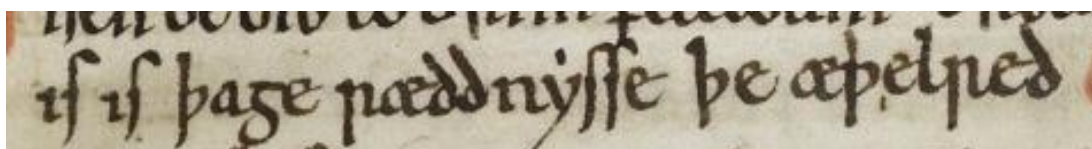 is is þage rædd nẏsse þe æþelred